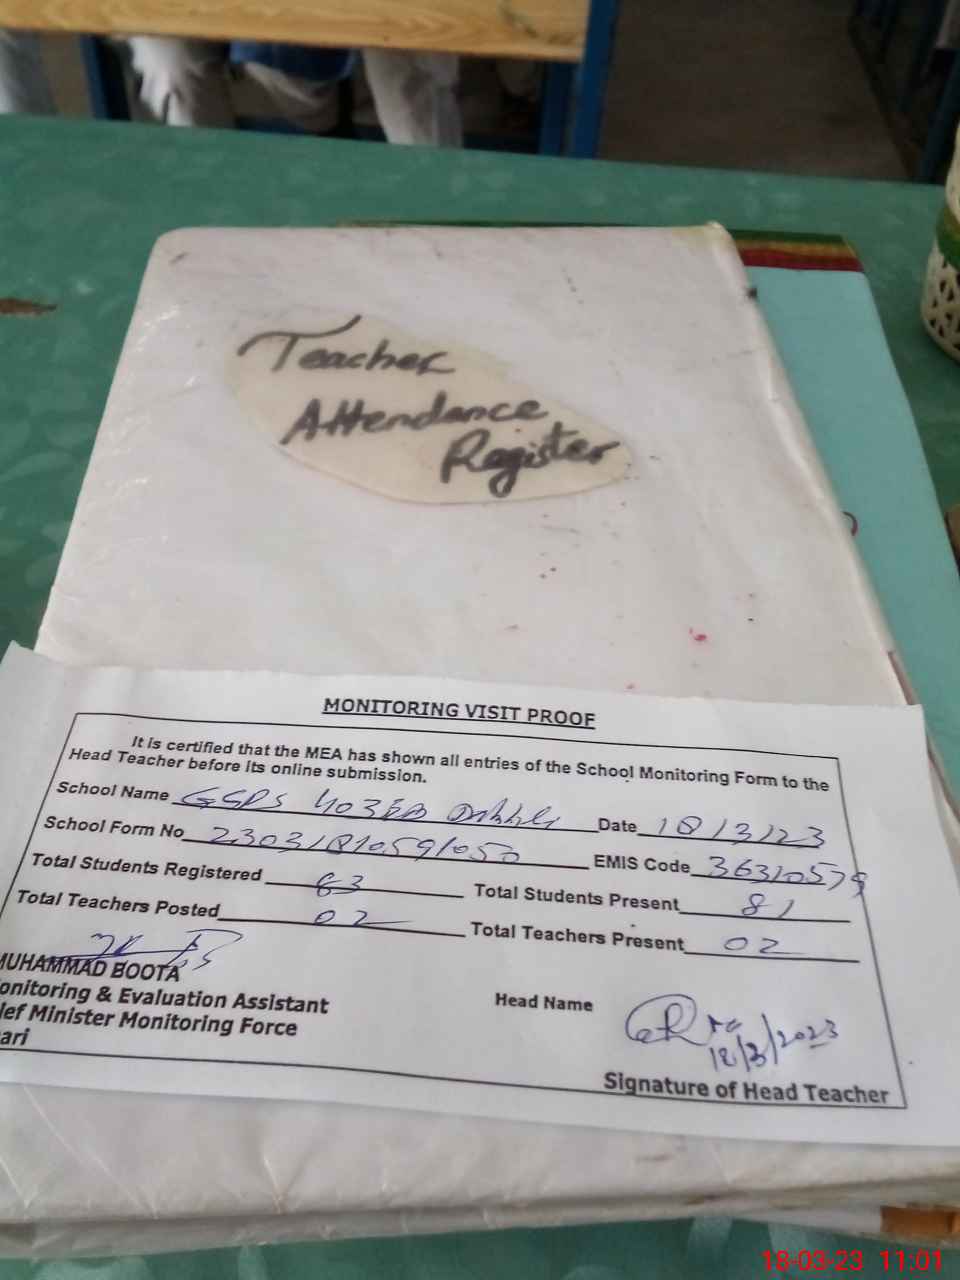 Teacher
Attendance
Register
MONITORING VISIT PROOF
It is certified that the MEA has shown all entries of the School Monitoring Form to the
Head Teacher before its online submission.
School Name GGPS 403EB Date 18/3/23
School Form No 23031810591050 EMIS Code 36310579
Total Students Registered 83 Total Students Present 81
Total Teachers Posted 02 Total Teachers Present 02
MUHAMMAD BOOTA
onitoring & Evaluation Assistant
ief Minister Monitoring Force
ari
Head Name
18/3/2023
Signature of Head Teacher
18-03-23 11:01